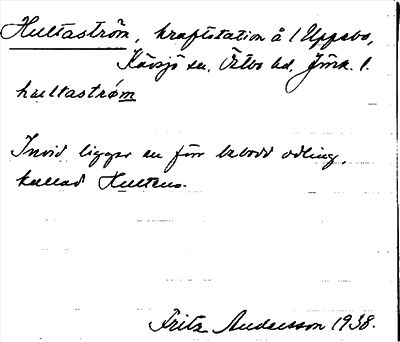 Hultaström, kraftstation å 1 Uppebo,
Kävsjö sn, Östbo hd, Jönk. l.
hultastrøm
Invid ligger en förr bebodd odling,
kallad Hultens.
Fritz Andersson 1938.